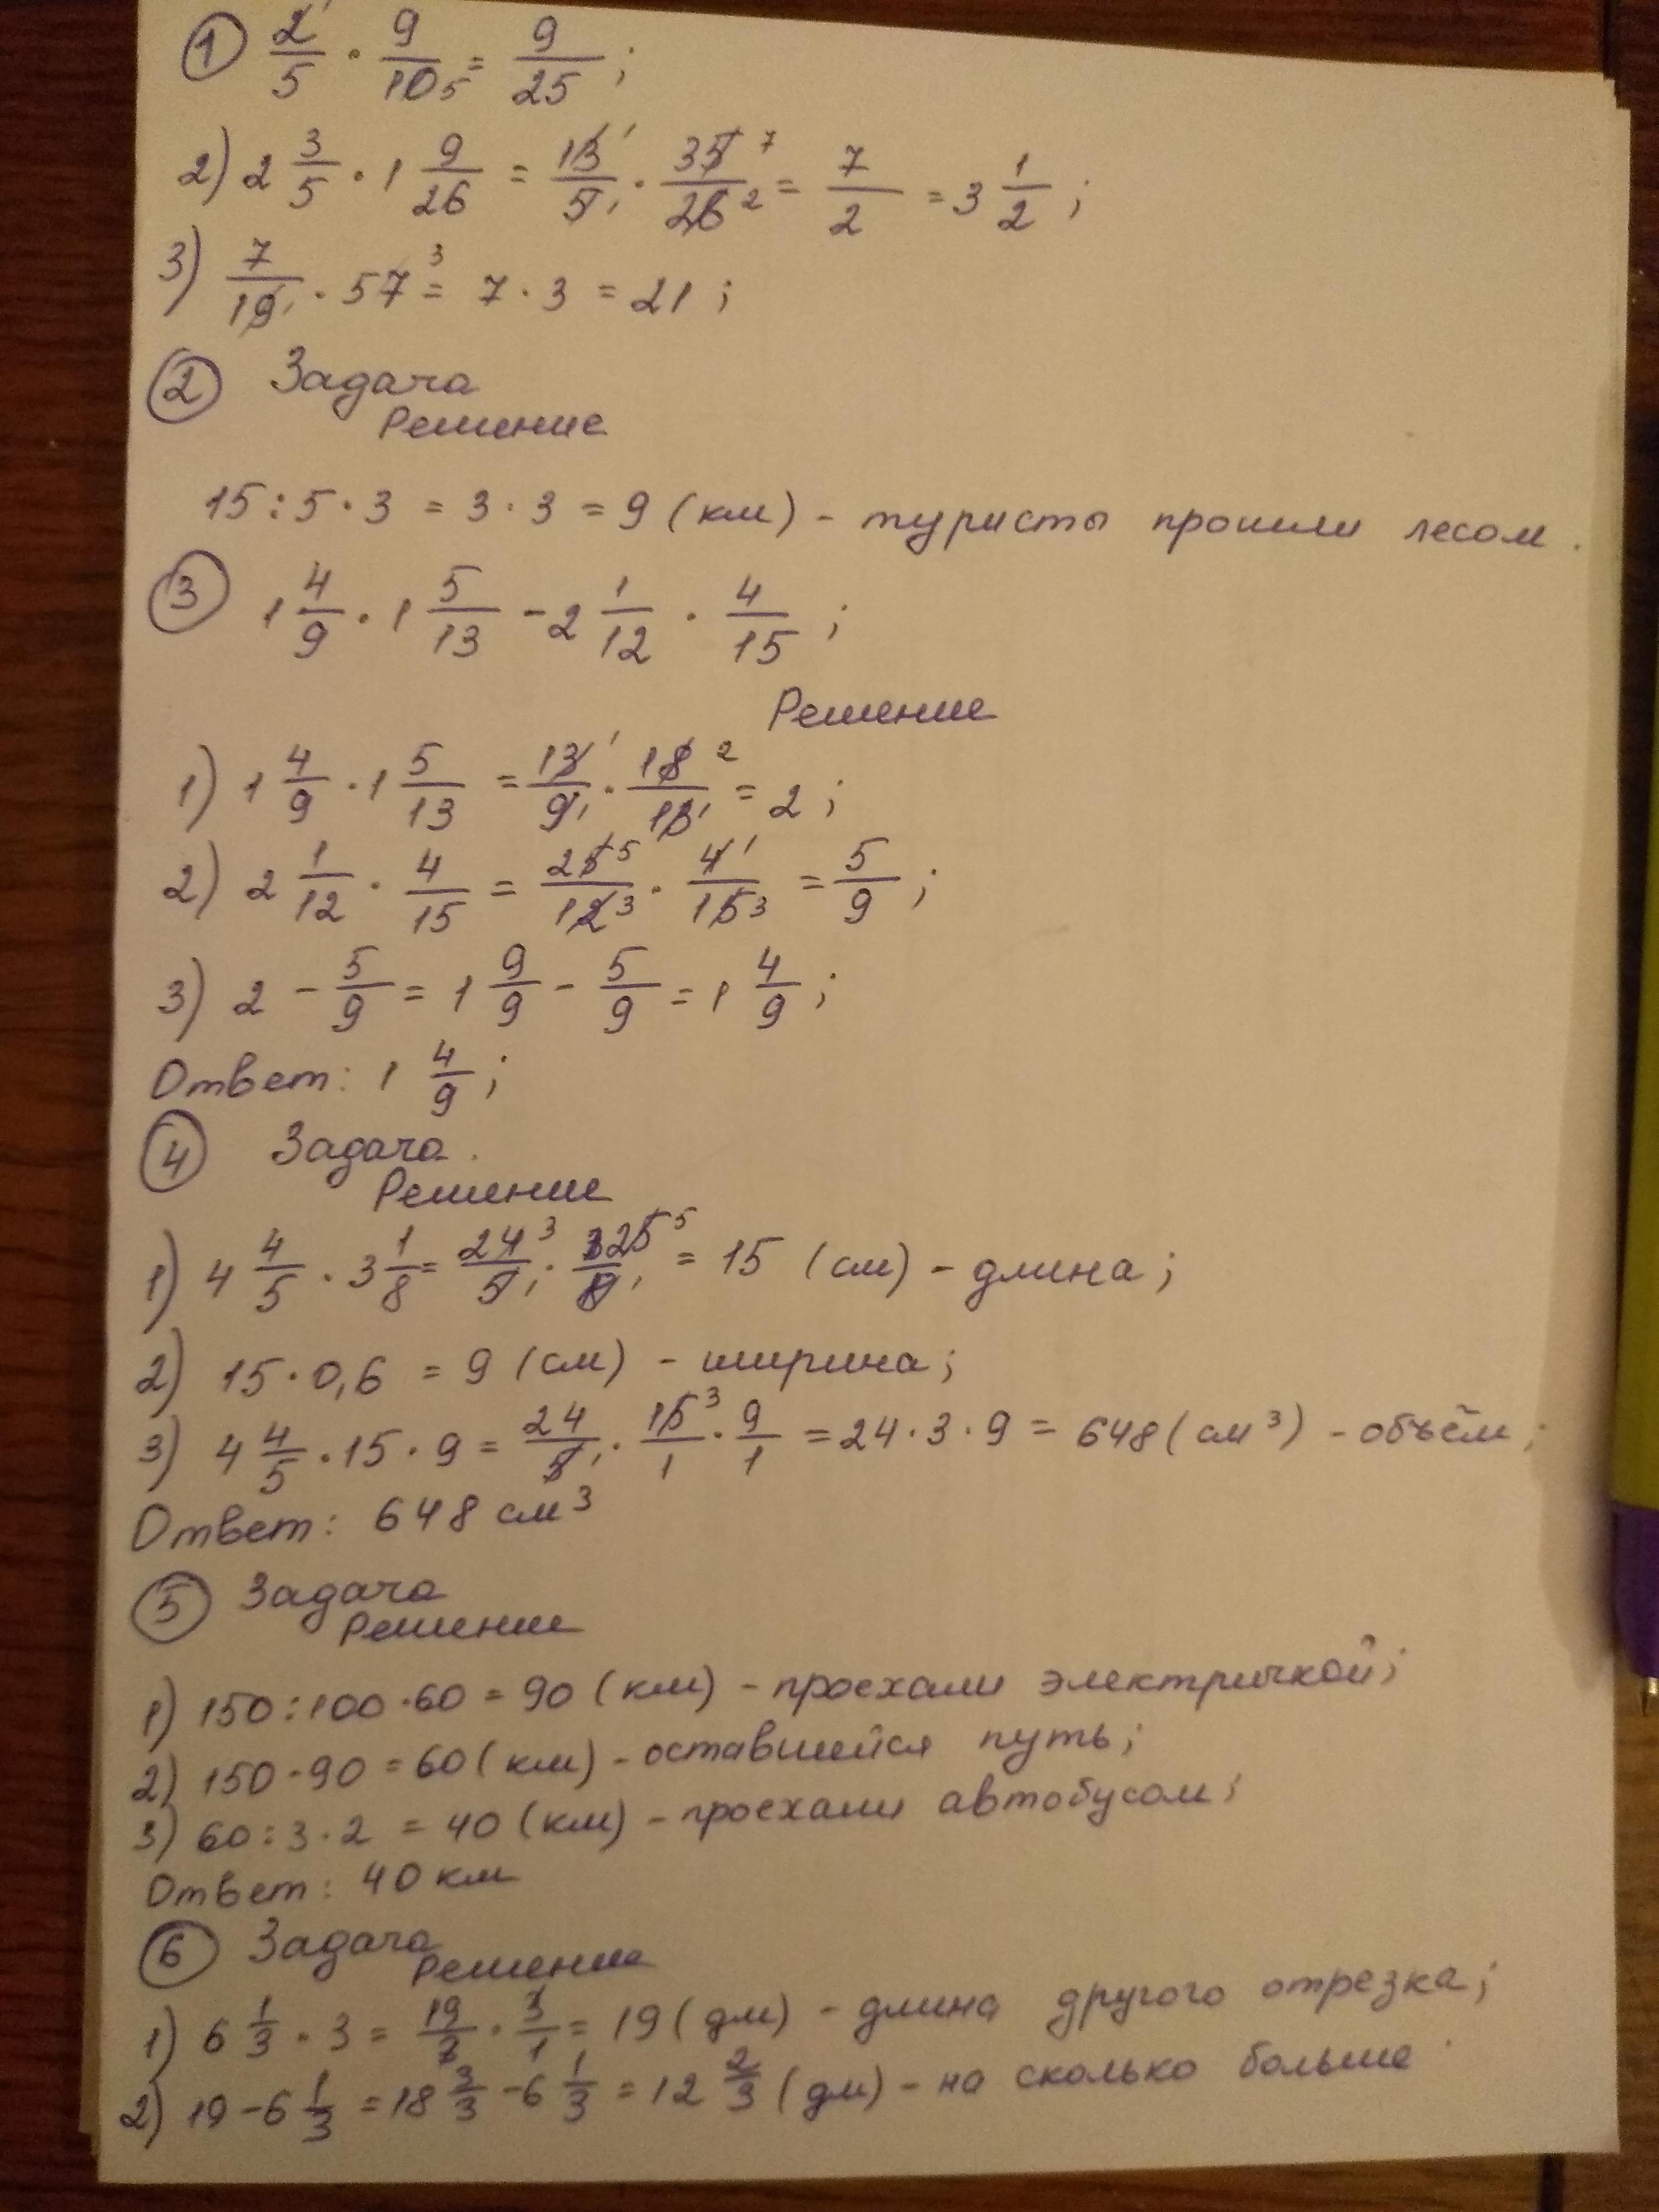 ① 2/5 · 9/10 = 9/25 ;
2) 2 3/5 · 1 9/26 = 13/5 · 35/26 = 7/2 = 3 1/2 ;
3) 7/19 · 57 = 7 · 3 = 21 ;
② Задача
Решение
15 : 5 · 3 = 3 · 3 = 9 (км) - туристы прошли лесом .
③ 1 4/9 · 1 5/13 - 2 1/12 · 4/15 ;
Решение
1) 1 4/9 · 1 5/13 = 13/9 · 18/13 = 2 ;
2) 2 1/12 · 4/15 = 25/12 · 4/15 = 5/9 ;
3) 2 - 5/9 = 1 9/9 - 5/9 = 1 4/9 ;
Ответ: 1 4/9 ;
④ Задача.
Решение
1) 4 4/5 · 3 1/8 = 24/5 · 25/8 = 15 (см) - длина ;
2) 15 · 0,6 = 9 (см) - ширина ;
3) 4 4/5 · 15 · 9 = 24/5 · 15/1 · 9/1 = 24 · 3 · 9 = 648 (см³) - объём ;
Ответ: 648 см³
⑤ Задача
Решение
1) 150 : 100 · 60 = 90 (км) - проехали электричкой ;
2) 150 - 90 = 60 (км) - оставшейся путь ;
3) 60 : 3 · 2 = 40 (км) - проехали автобусом ;
Ответ: 40 км
⑥ Задача
Решение
1) 6 1/3 · 3 = 19/3 · 3/1 = 19 (дм) - длина другого отрезка ;
2) 19 - 6 1/3 = 18 3/3 - 6 1/3 = 12 2/3 (дм) - на сколько больше